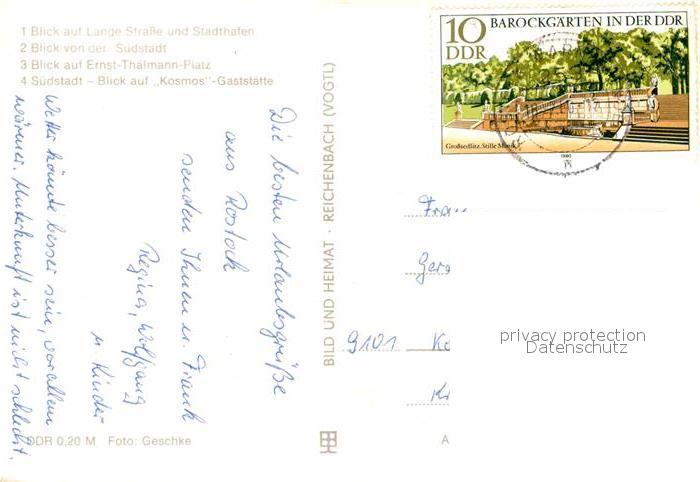 1 Blick auf Lange Straße und Stadthafen
2 Blick von der Südstadt
3 Blick auf Ernst-Thälmann-Platz
4 Südstadt – Blick auf „Kosmos"-Gaststätte
Die besten Urlaubsgrüße
aus Rostock
senden Ihnen u. Frank
Regina, Wolfgang
u. Kinder
Wetter könnte besser sein, vor allem
wärmer. Unterkunft ist nicht schlecht.
DDR 0,20 M Foto: Geschke
BILD UND HEIMAT · REICHENBACH (VOGTL)
10
DDR
BAROCKGÄRTEN IN DER DDR
Großsedlitz. Stille Musik
1980
9101
privacy protection
Datenschutz
A